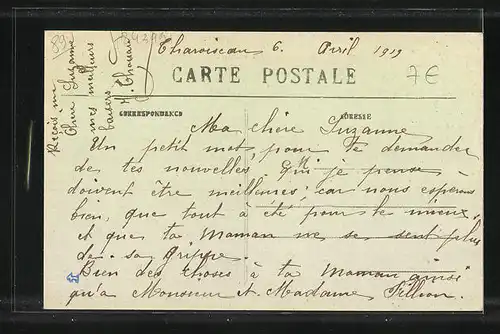 89
84395
7€
Charoiseau 6. Avril 1919
CARTE POSTALE
CORRESPONDANCE
ADRESSE
Ma chère Suzanne
Un petit mot, pour te demander
de tes nouvelles, Qui je pense
doivent être meilleures; car nous esperons
bien, que tout à été pour le mieux
et que ta Maman ne se sent plus
de sa Grippe.
Bien des choses à ta Maman ainsi
qu'a Monsieur et Madame Fillion.
Reçois, ma
Chère Suzanne
mes meilleurs
baisers